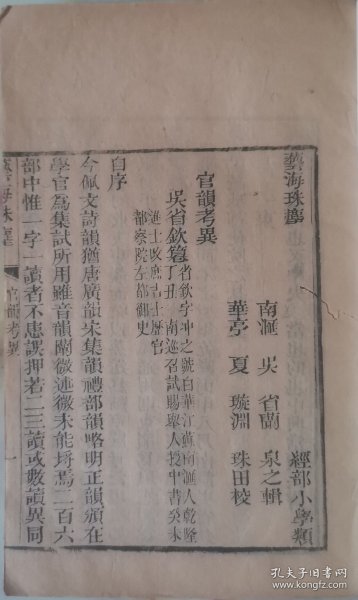 藝海珠塵
經部小學類
南滙 吳省蘭 泉之輯
華亭 夏璇淵 珠田校
官韻考異
吳省欽篹
省欽字冲之號白華江蘇南滙人乾隆
丁丑 南巡召試賜舉人授中書癸未
進士改庶吉士歷官
都察院左都御史
自序
今佩文詩韻猶唐廣韻宋集韻禮部韻略明正韻頒在
學官為集試所用雖音韻闡微述微未能埓焉二百六
部中惟一字一讀者不患誤押若二三讀或數讀異同
藝海珠塵
官韻考異
一
孔夫子旧书网
www.kongfz.com